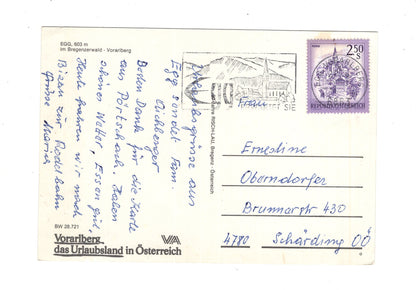 EGG, 600 m
im Bregenzerwald - Vorarlberg
Urlaubsgrüsse aus
Egg sendet Fam.
Eichberger
Besten Dank für die Karte
aus Pörtschach. Haben
schönes Wetter, Essen gut,
Heute fahren wir nach
Bizau zur Rodelbahn
Grüsse Maria
BW 28.721
Vorarlberg
das Urlaubsland in Österreich
VVA
RISCH-LAU, Bregenz - Österreich
2.50
REPUBLIK ÖSTERREICH
Frau
Ernestine
Oberndorfer
Brunnarstr 430
4780 Schärding OÖ